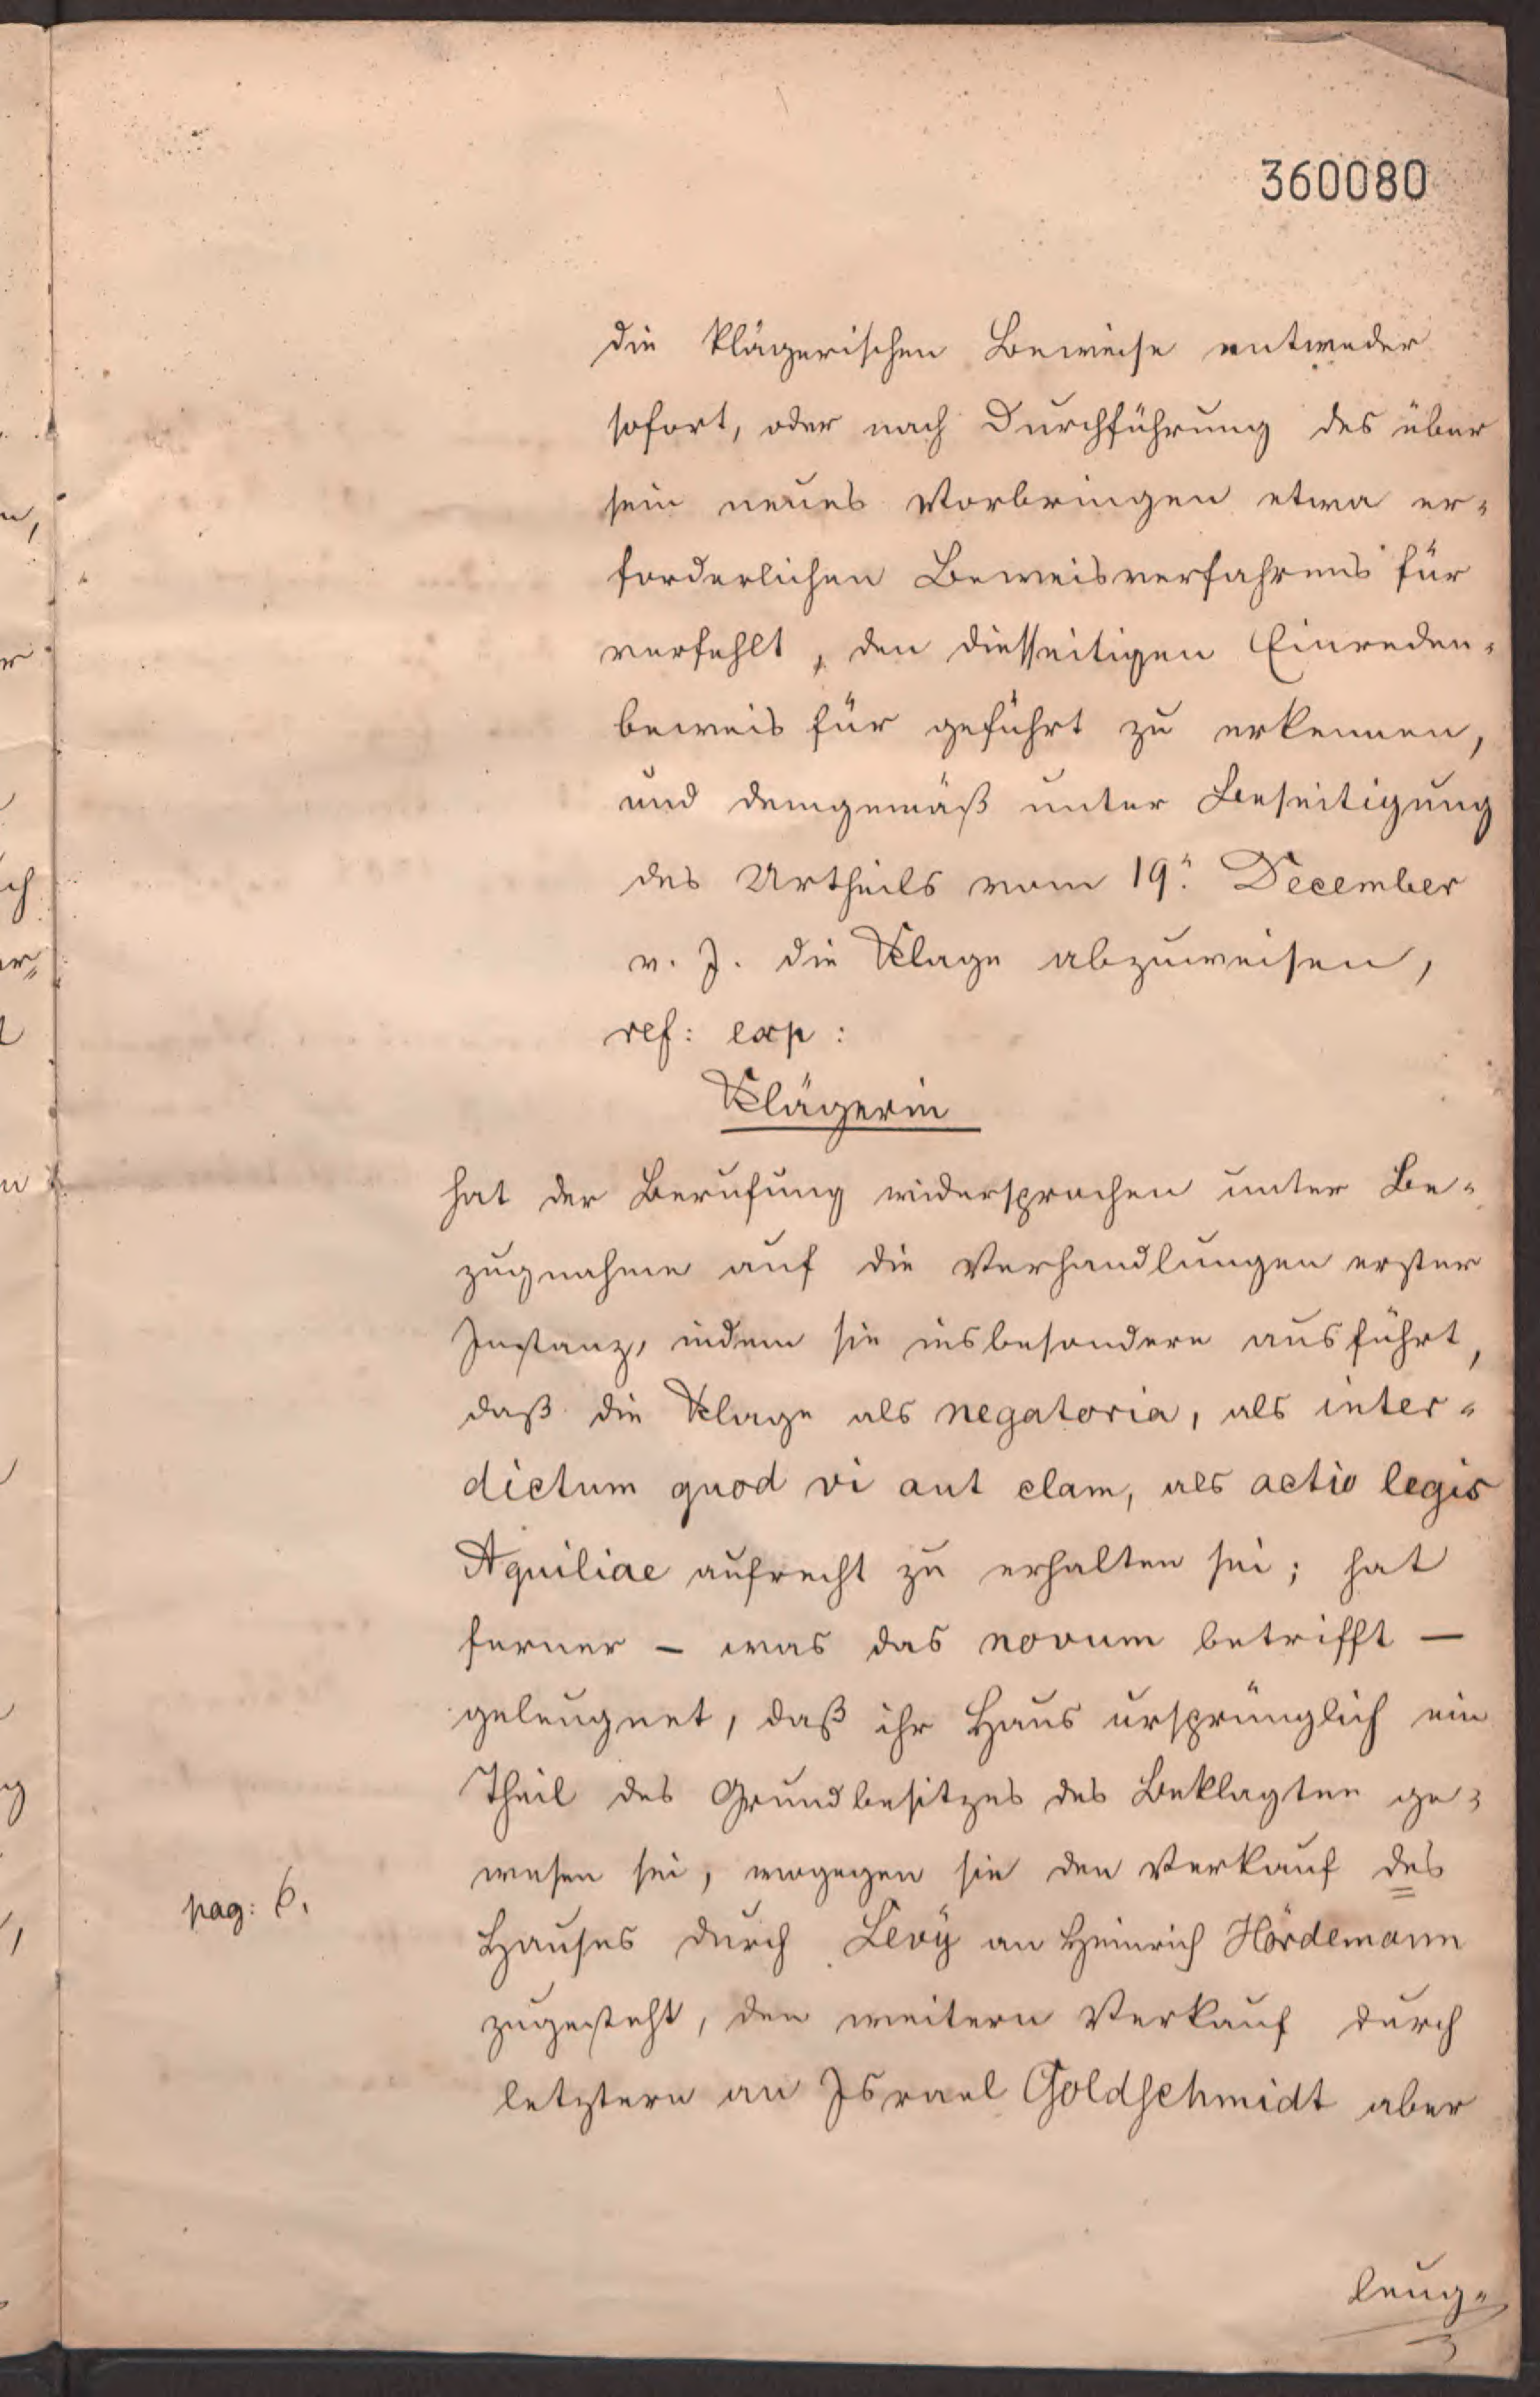 360080
die klägerischen Beweise entweder
sofort, oder nach Durchführung des über
sein neues Vorbringen etwa er-
forderlichen Beweisverfahrens für
verfehlt, den diesseitigen Einreden-
beweis für geführt zu erkennen,
und demgemäß unter Beseitigung
des Urtheils vom 19. December
v. J. die Klage abzuweisen,
ref: exp:
Klägerin
hat der Berufung widersprochen unter Be-
zugnahme auf die Verhandlungen erster
Instanz, indem sie insbesondere ausführt,
daß die Klage als negatoria, als inter-
dictum quod vi aut clam, als actio legis
Aquiliae aufrecht zu erhalten sei; hat
ferner – was das novum betrifft –
geleugnet, daß ihr Haus ursprünglich ein
Theil des Grundbesitzes des Beklagten ge-
wesen sei, wogegen sie den Verkauf des
pag: 6.
Hauses durch Levÿ an Heinrich Hördemann
zugesteht, den weitern Verkauf durch
letztern an Israel Goldschmidt aber
leug-